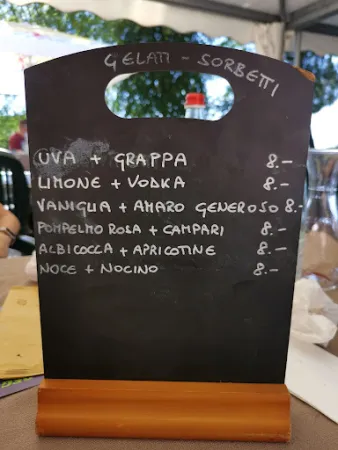 GELATI - SORBETTI
UVA + GRAPPA 8.-
LIMONE + VODKA 8.-
VANIGLIA + AMARO GENEROSO 8.-
POMPELMO ROSA + CAMPARI 8.-
ALBICOCCA + APRICOTINE 8.-
NOCE + NOCINO 8.-